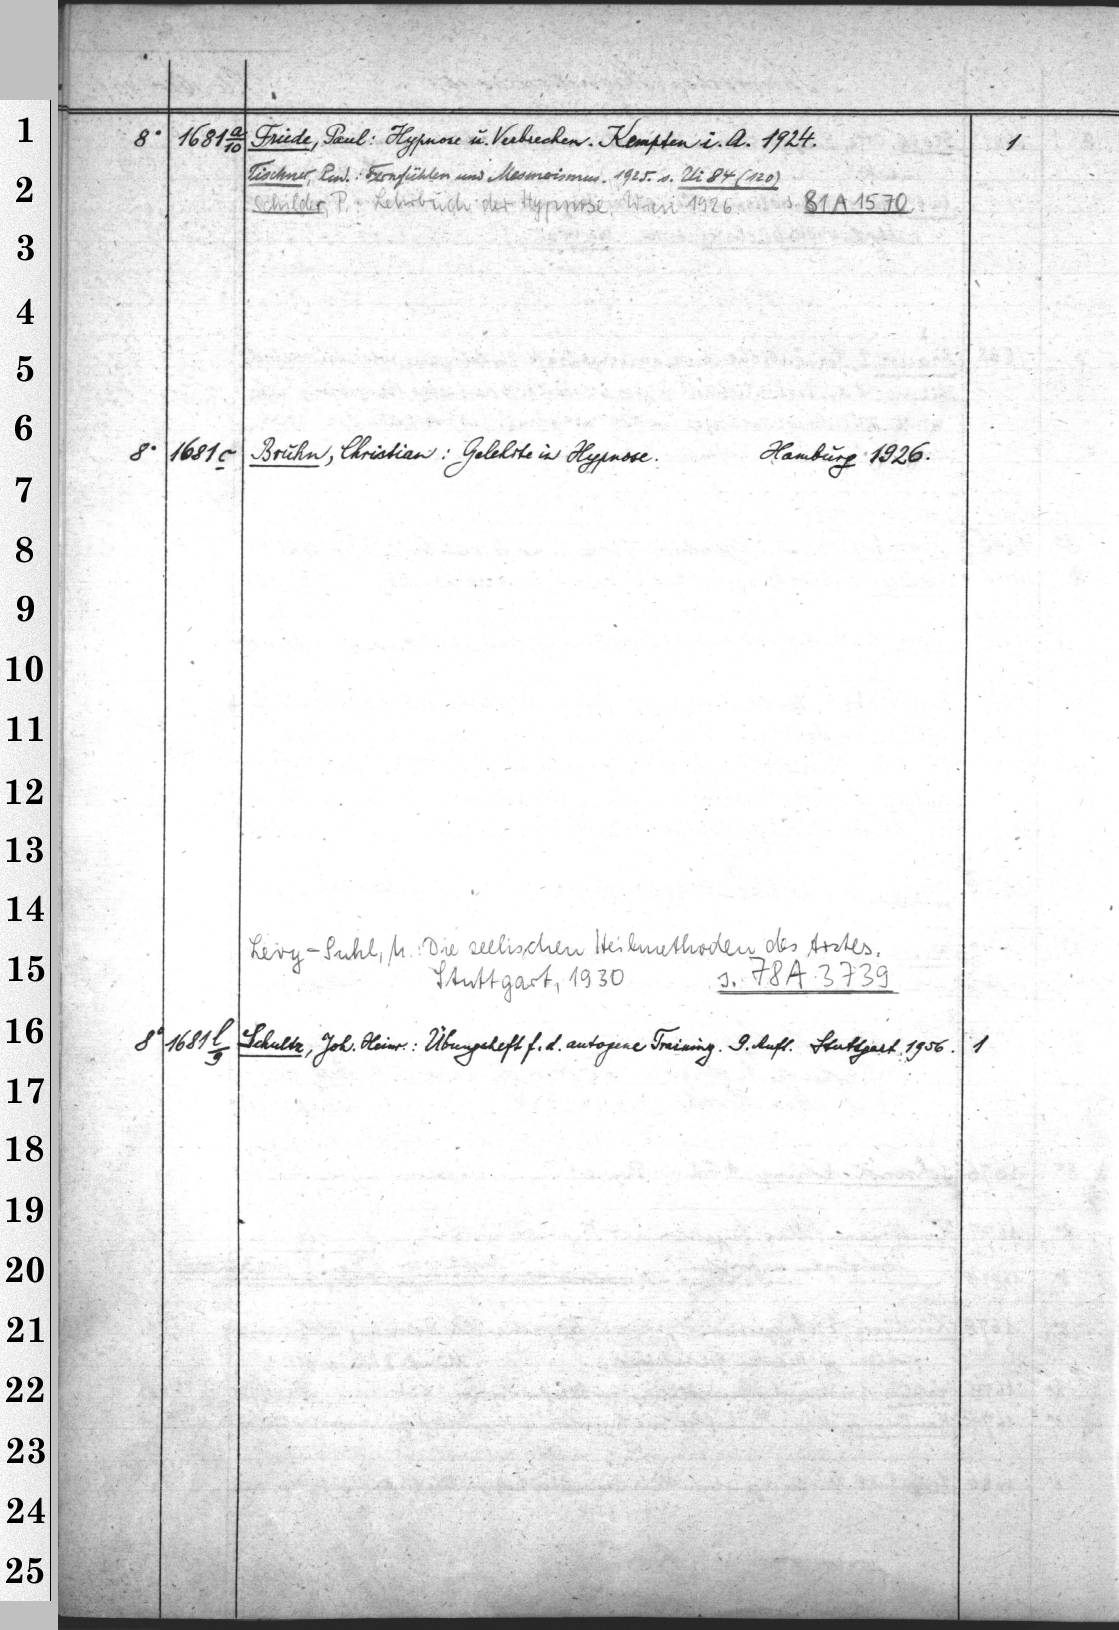 1
8° 1681 a/10 Friede, Paul: Hypnose u. Verbrechen. Kempten i. A. 1924. 1
Tischner, Rud.: Fernfühlen und Mesmerismus. 1925. s. Ui 84 (120)
2
Schilder, P.: Lehrbuch der Hypnose. Wien 1926 s. 81 A 1570
3
4
5
6
8° 1681 c Bruhn, Christian: Gelehrte in Hypnose. Hamburg 1926.
7
8
9
10
11
12
13
14
Levy-Suhl, M.: Die seelischen Heilmethoden des Arztes.
15
Stuttgart, 1930 s. 78 A 3739
16
8° 1681 l/9 Schultz, Joh. Heinr.: Übungsheft f. d. autogene Training. 9. Aufl. Stuttgart 1956. 1
17
18
19
20
21
22
23
24
25